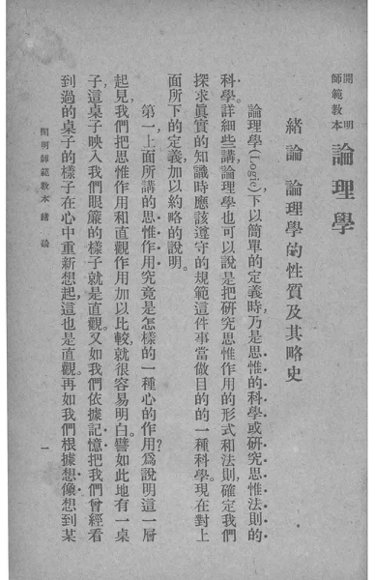 開明
師範教本
論理學
緒論 論理學的性質及其略史
論理學(Logic),下以簡單的定義時,乃是思惟的科學或研究思惟法則的
科學。詳細些講,論理學也可以說是把研究思惟作用的形式和法則確定我們
探求眞實的知識時應該遵守的規範這件事當做目的的一種科學。現在對上
面所下的定義加以約略的說明。
第一,上面所講的思惟作用究竟是怎樣的一種心的作用?爲說明這一層
起見,我們把思惟作用和直觀作用加以比較,就很容易明白。譬如此地有一桌
子,這桌子映入我們眼簾的樣子就是直觀。又如我們依據記憶,把我們曾經看
到過的桌子的樣子在心中重新想起,這也是直觀。再如我們根據想像,想到某
開明師範教本 緒論
一